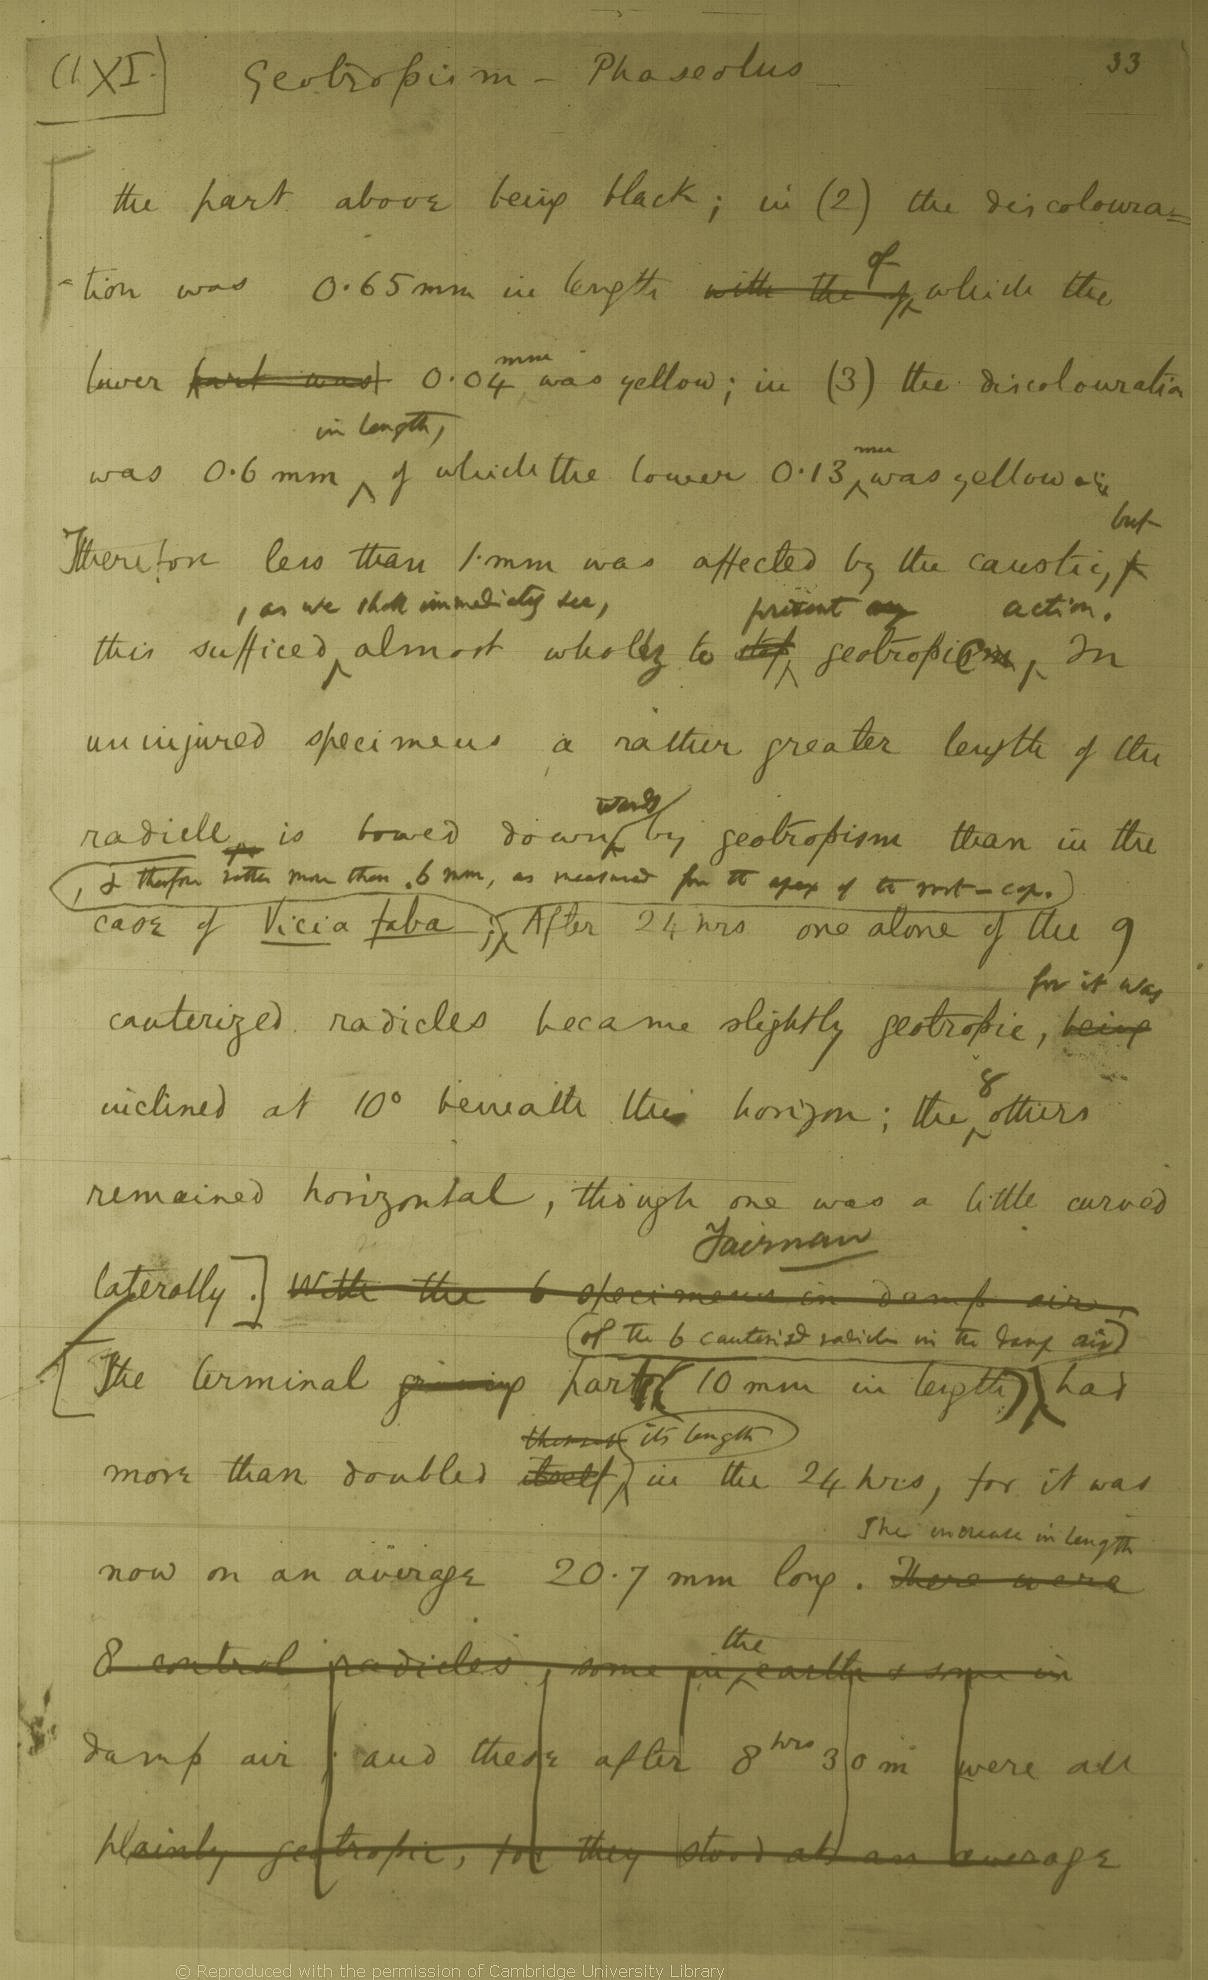 (XI.)
Geotropism – Phaseolus
33
the part above being black; in (2) the discoloura=
of
-tion was 0.65 mm in length with the of which the
mm
lower part was 0.04 was yellow; in (3) the discolouration
in length,
mm
was 0.6 mm of which the lower 0.13 was yellow
but
Therefore less than 1 mm was affected by the caustic,
, as we shall immediately see,
prevent any action.
this sufficed almost wholly to stop geotropism, In
uninjured specimens a rather greater length of the
wards
radicle is bowed down by geotropism than in the
, & therefore rather more than .6 mm, as measured from the apex of the root-cap.
case of Vicia faba; After 24 hrs one alone of the 9
for it was
cauterized radicles became slightly geotropic, being
8
inclined at 10° beneath the horizon; the others
remained horizontal, though one was a little curved
Fairman
laterally.] With the 6 specimens in damp air,
(of the 6 cauterised radicles in the damp air)
[The terminal growing parts (10 mm in length) had
its length
more than doubled itself, in the 24 hrs, for it was
The increase in length
now on an average 20.7 mm long. There were
the
8 control radicles, some in earth & some in
damp air; and these after 8 hrs 30 m were all
plainly geotropic, for they stood at an average
© Reproduced with the permission of Cambridge University Library